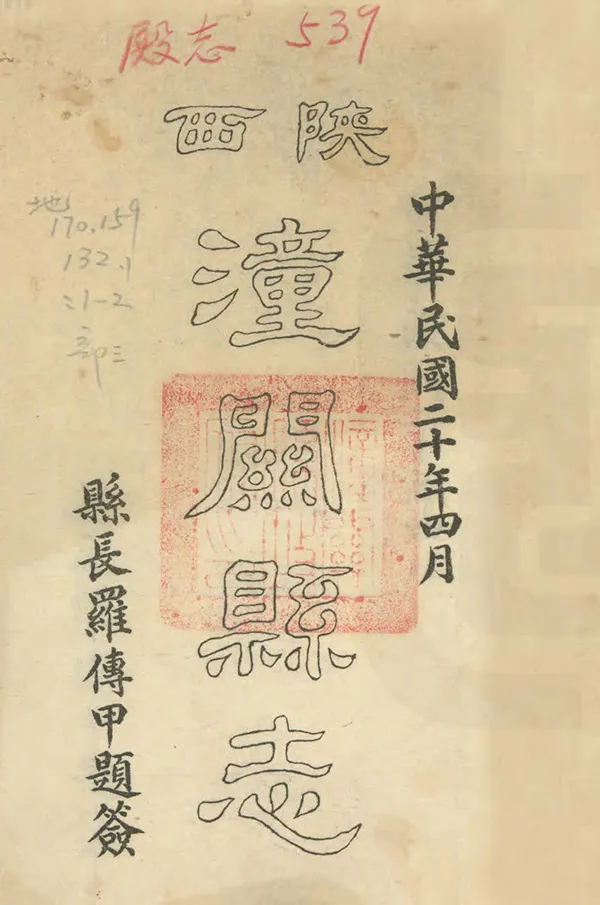 殿志 539
陝西
中華民國二十年四月
潼關縣志
縣長羅傳甲題簽
地
170.159
132.1
:1-2